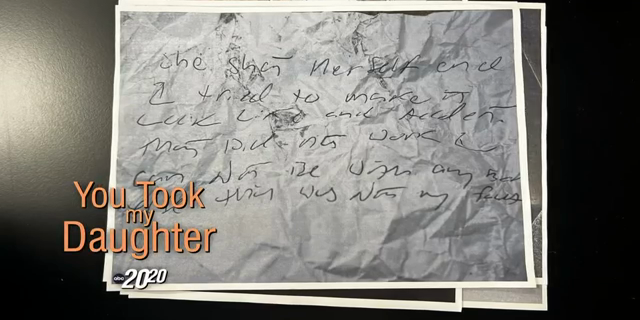 She Shot Herself and
I tried to make it
Look Like and
that Did not work I
can Not Be With any
this was Not my
You Took
my
Daughter
abc 20/20